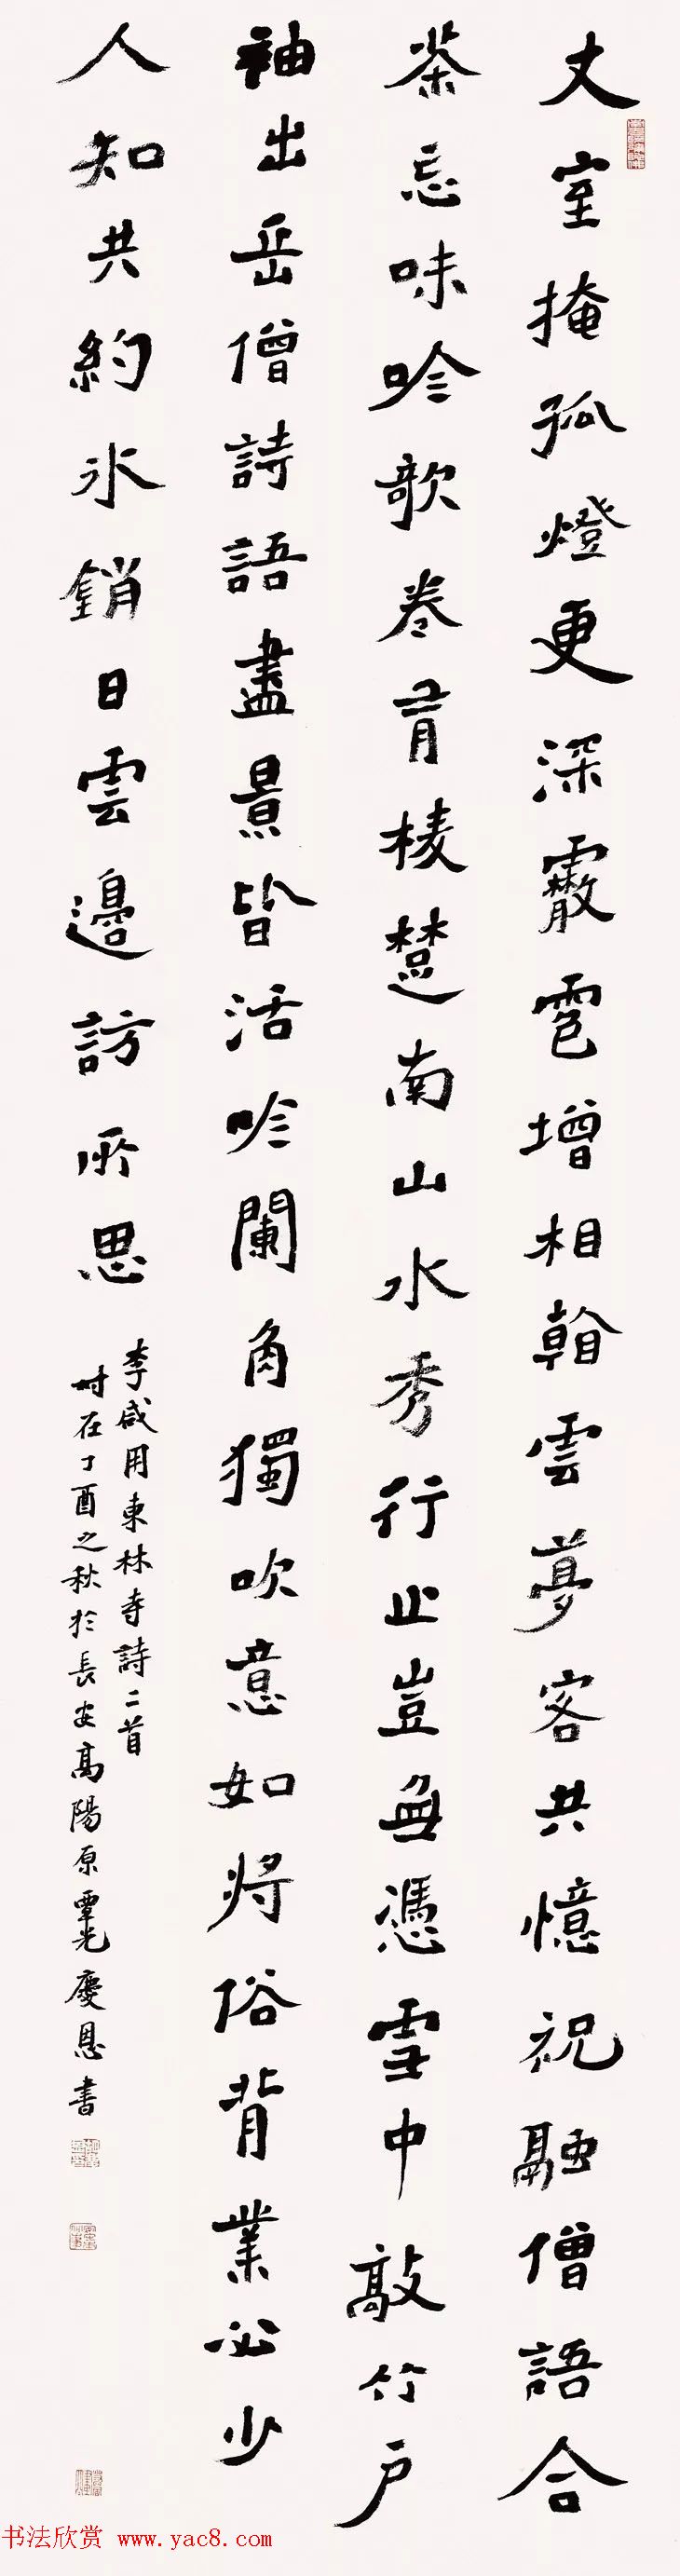 丈室掩孤燈更深霰雹增相韜雲夢客共憶祝融僧語合
茶忘味吟欹卷有棱楚南山水秀行止豈無憑雪中敲竹户
袖出岳僧詩語盡景皆活吟闌角獨吹意如將俗背業必少
人知共約冰銷日雲邊訪所思
李咸用東林寺詩二首
時在丁酉之秋於長安高陽原覃光慶恩書
书法欣赏 www.yac8.com